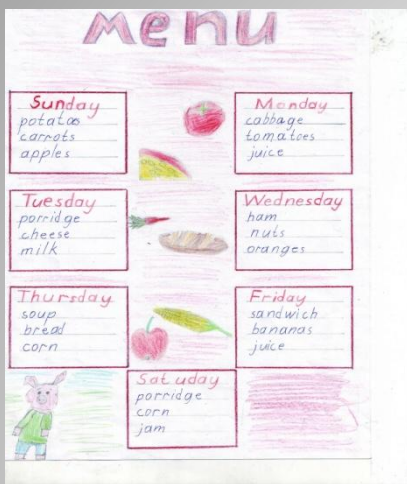 Menu
Sunday
potatos
carrots
apples
Monday
cabbage
tomatoes
juice
Tuesday
porridge
cheese
milk
Wednesday
ham
nuts
oranges
Thursday
soup
bread
corn
Friday
sandwich
bananas
juice
Satuday
porridge
corn
jam